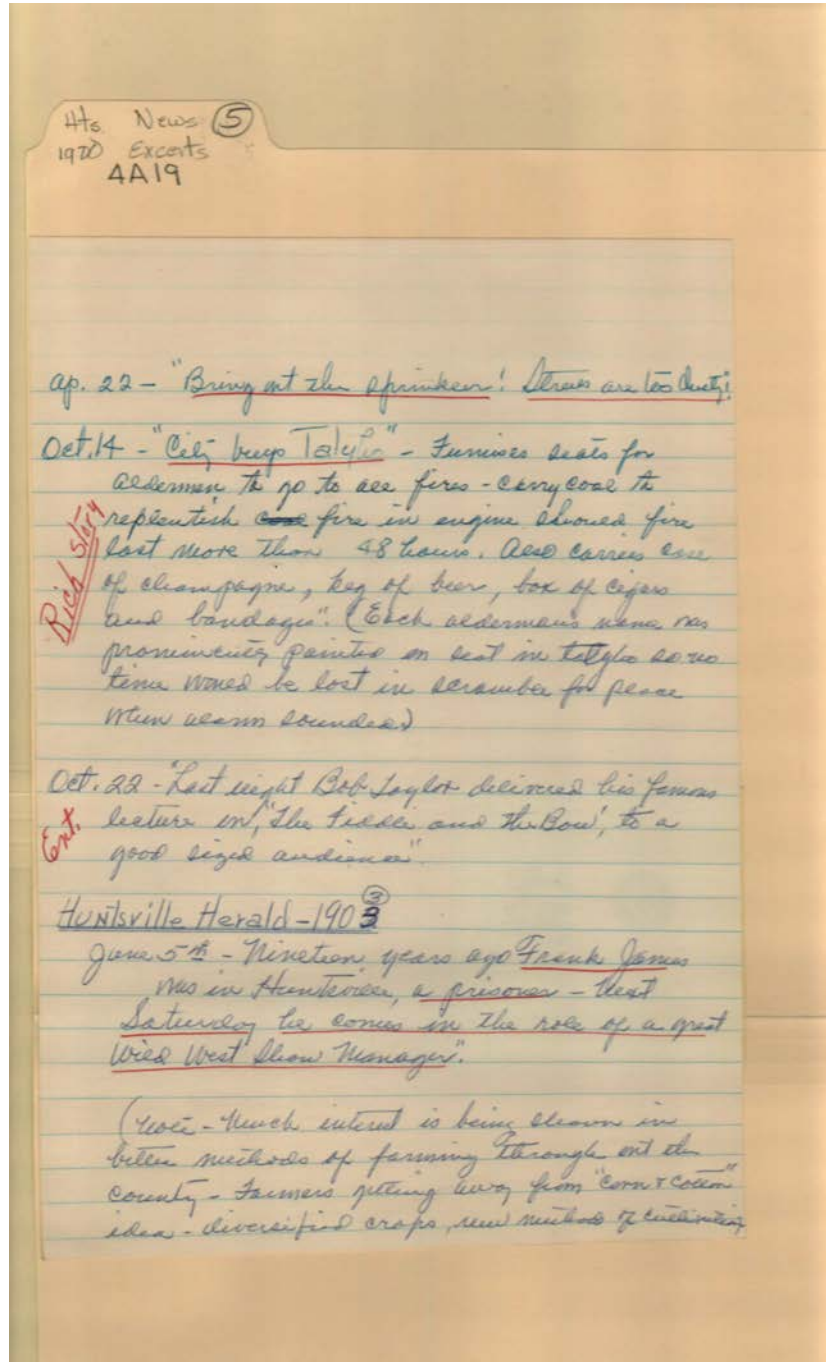 Hts News ⑤
1920 Excerts
4A19
Ap. 22 - "Bring out the sprinkler! Streets are too dusty!
Oct. 14 - "City buys Talyho" - Furnises seats for
aldermen to go to see fires - carry coal to
replentish fire in engine should fire
last more than 48 hours. Also carries case
of champagne, keg of beer, box of cigars
and bandages". (Each alderman's name was
prominently painted on seat in talyho so no
time would be lost in scramble for place
when alarm sounded)
Rich Story
Oct. 22 - "Last night Bob Taylor delivered his famous
lecture on, 'The Fiddle and the Bow', to a
good sized audience".
Ent.
Huntsville Herald - 1903 ③
June 5th - Nineteen years ago Frank James
was in Huntsville, a prisoner - Next
Saturday he comes in the role of a great
Wild West Show Manager".
(Note - Much interest is being shown in
better methods of farming through out the
county - Farmers getting away from "corn & cotton"
idea - diversified crops, new methods of cultivating